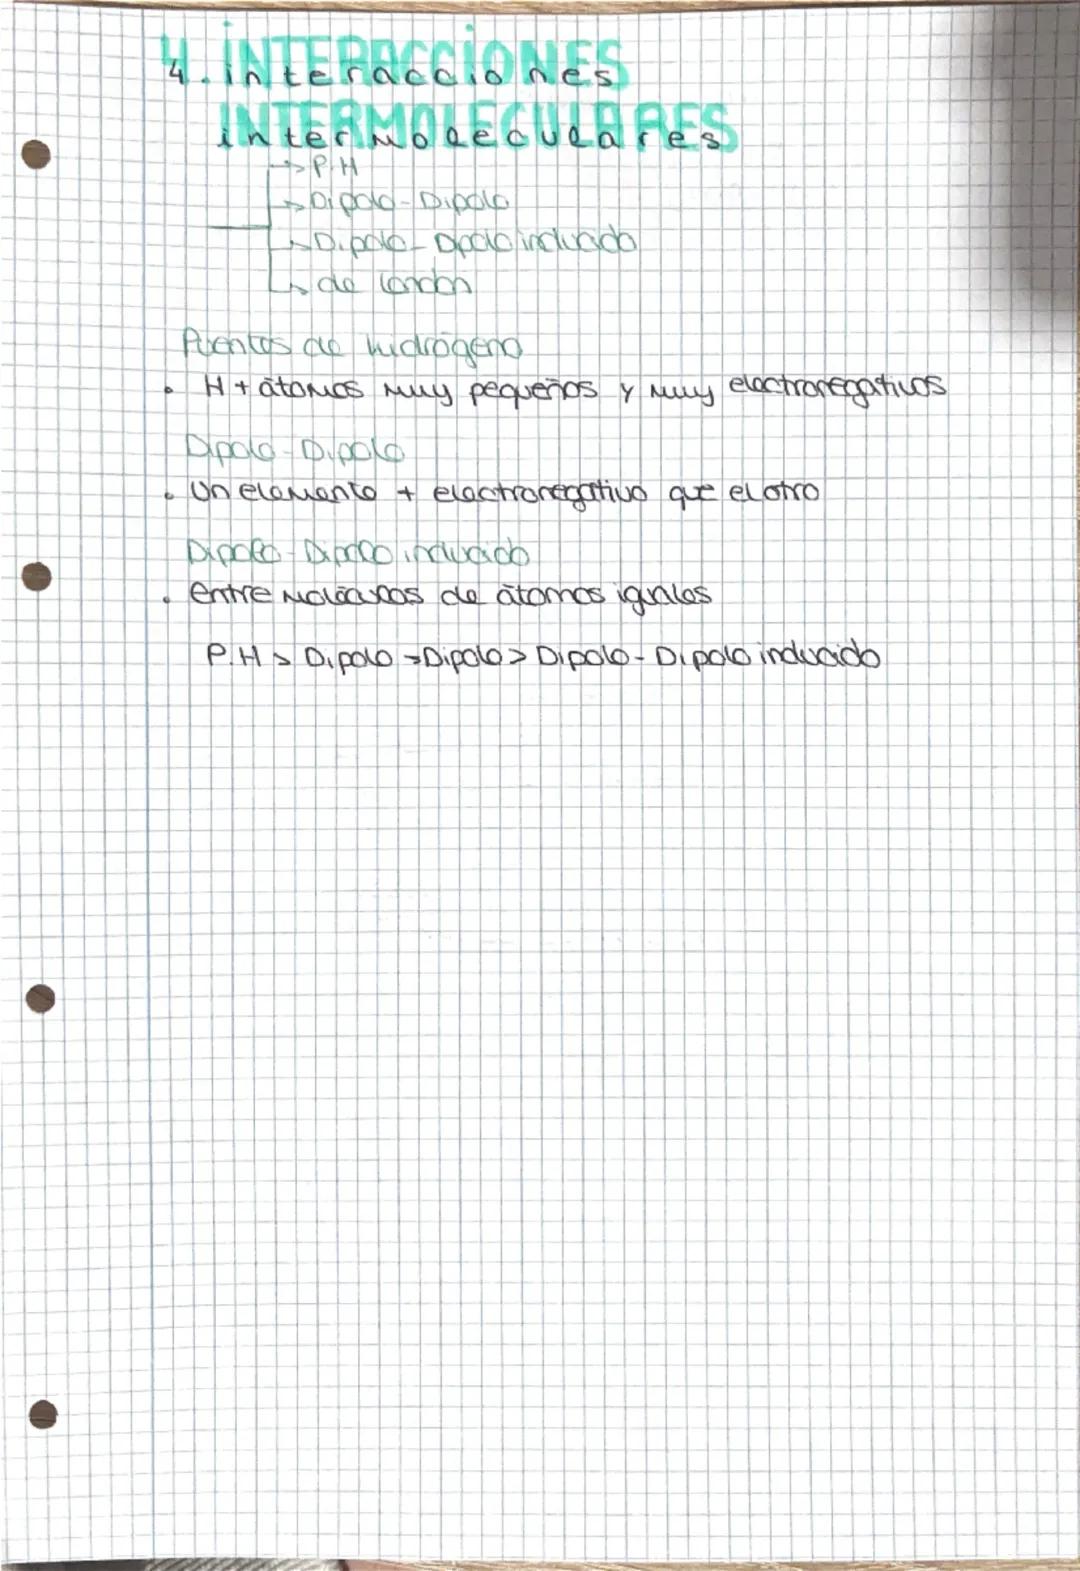 4. INTERACCIONES
interacciones
INTERMOLECULARES
intermoleculares
→ P.H
→ Dipolo-Dipolo
→ Dipolo-Dipolo inducido
→ de London
Puentes de hidrógeno
• H + átomos muy pequeños y muy electronegativos
Dipolo-Dipolo
• Un elemento + electronegativo que el otro
Dipolo-Dipolo inducido
• Entre moléculas de átomos iguales
P.H > Dipolo-Dipolo > Dipolo-Dipolo inducido